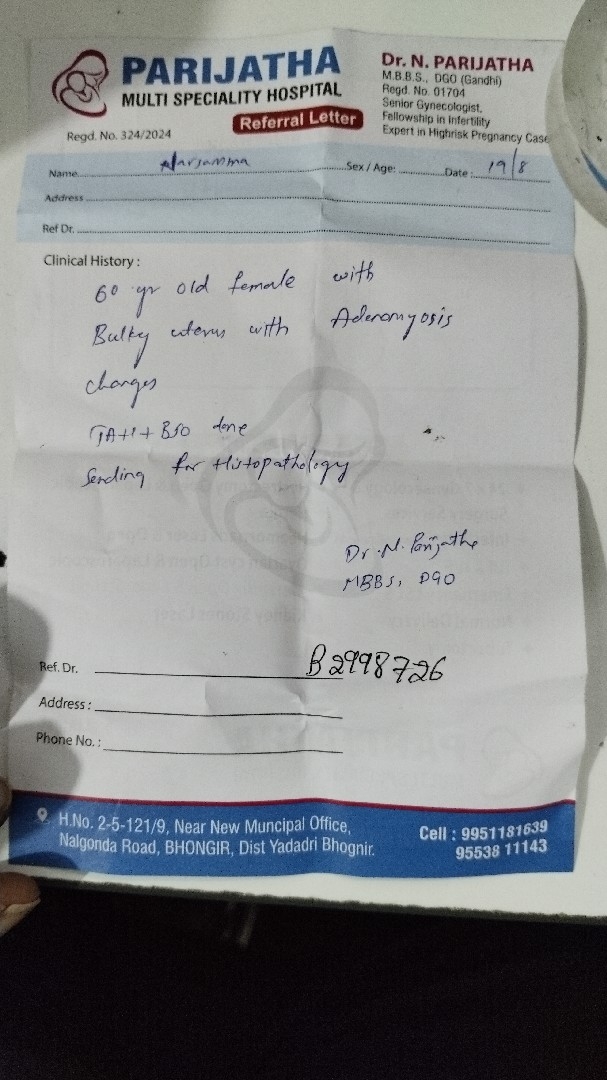 PARIJATHA
MULTI SPECIALITY HOSPITAL
Regd. No. 324/2024
Referral Letter
Dr. N. PARIJATHA
M.B.B.S., DGO (Gandhi)
Regd. No. 01704
Senior Gynecologist,
Fellowship in Infertility
Expert in Highrisk Pregnancy Case
Name Narsamma Sex / Age: Date : 19/8
Address
Ref Dr.
Clinical History :
60 yr old female with
Bulky uterus with Adenomyosis
changes
TAH + BSO done
Sending for Histopathology
Dr. N. Parijatha
MBBS, DGO
Ref. Dr. B2998726
Address :
Phone No. :
H.No. 2-5-121/9, Near New Muncipal Office,
Nalgonda Road, BHONGIR, Dist Yadadri Bhognir.
Cell : 9951181639
95538 11143